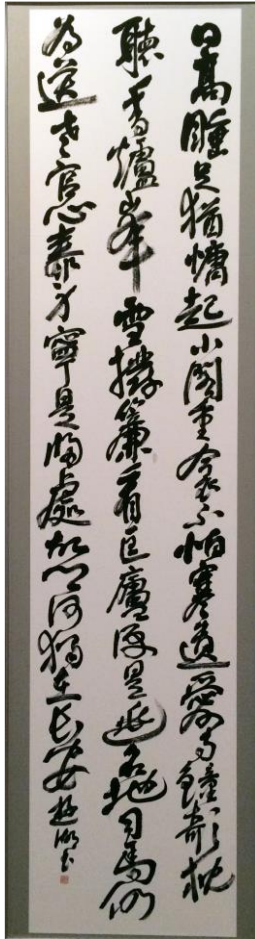 日高睡足猶慵起小閣重衾不怕寒遺愛寺鐘欹枕
聽香爐峯雪撥簾看匡廬便是逃名地司馬仍
為送老官心泰身寧是歸處故鄉何獨在長安